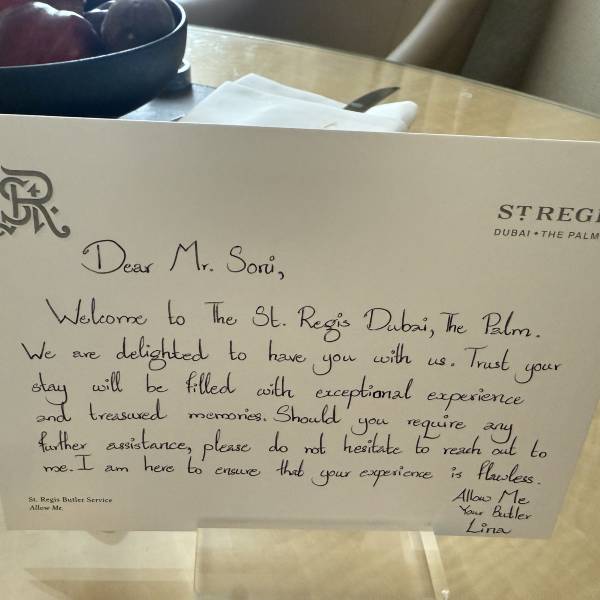 ST REGI
DUBAI • THE PALM
Dear Mr. Soni,
Welcome to The St. Regis Dubai, The Palm.
We are delighted to have you with us. Trust your
stay will be filled with exceptional experience
and treasured memories. Should you require any
further assistance, please do not hesitate to reach out to
me. I am here to ensure that your experience is flawless.
Allow Me
Your Butler
Lina
St. Regis Butler Service
Allow Me.